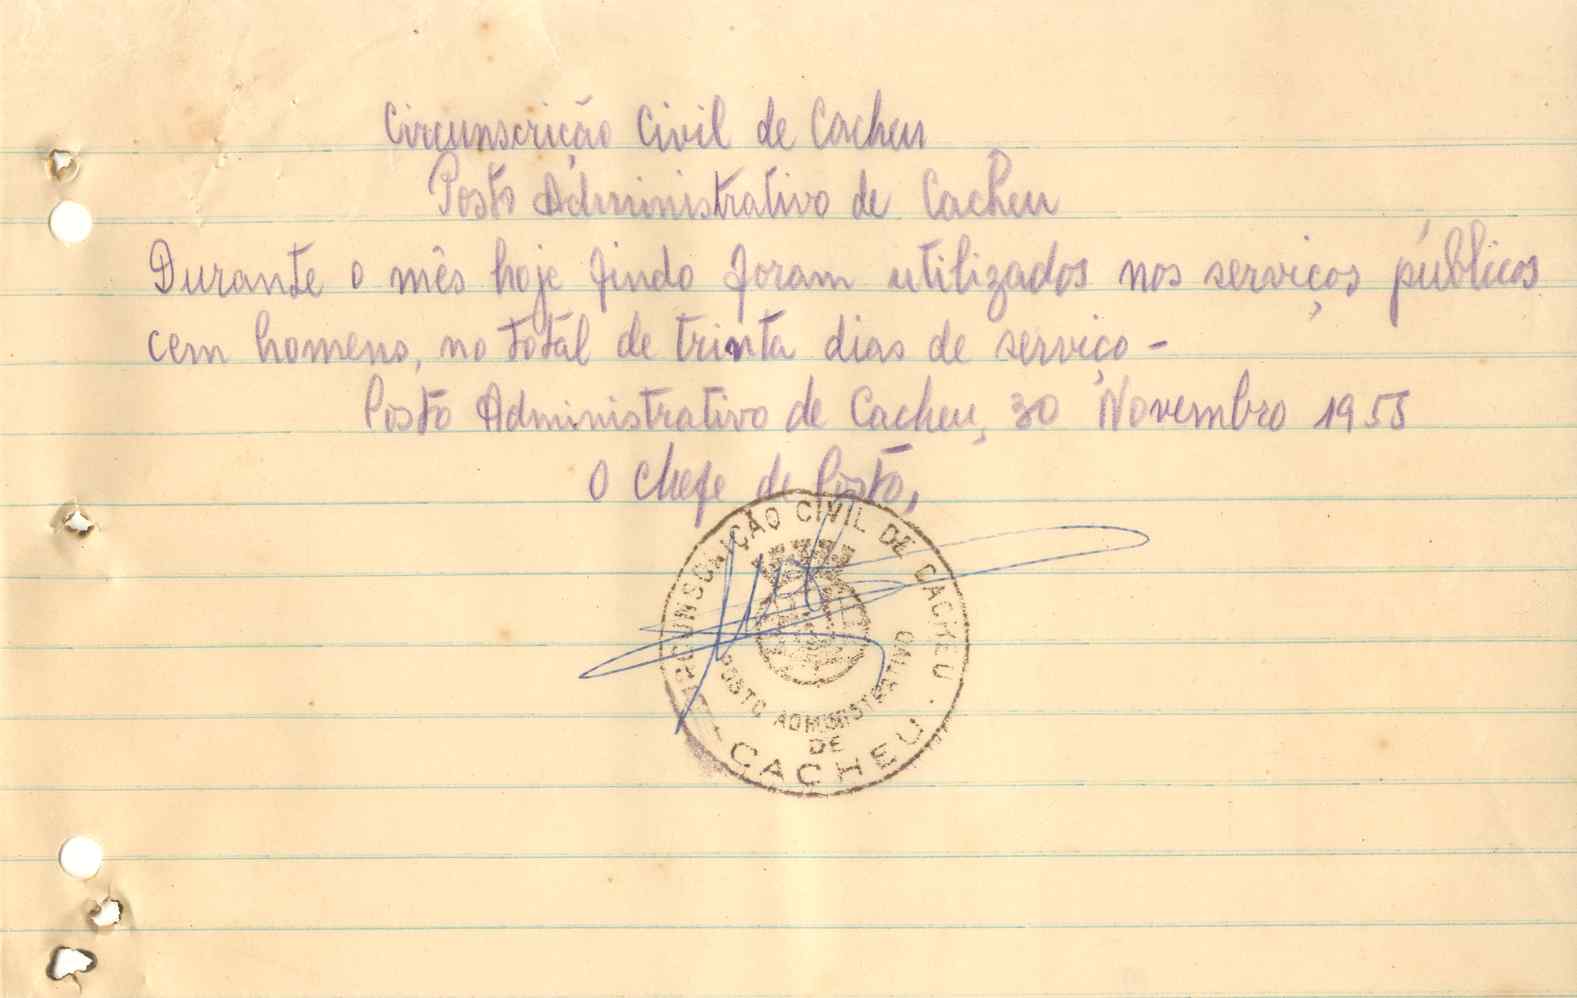 Circunscrição Civil de Cacheu
Posto Administrativo de Cacheu
Durante o mês hoje findo foram utilizados nos serviços públicos
cem homens, no total de trinta dias de serviço -
Posto Administrativo de Cacheu, 30 Novembro 1955
O Chefe de Posto,
CIRCUNSCRIÇÃO CIVIL DE CACHEU
POSTO ADMINISTRATIVO
DE
CACHEU